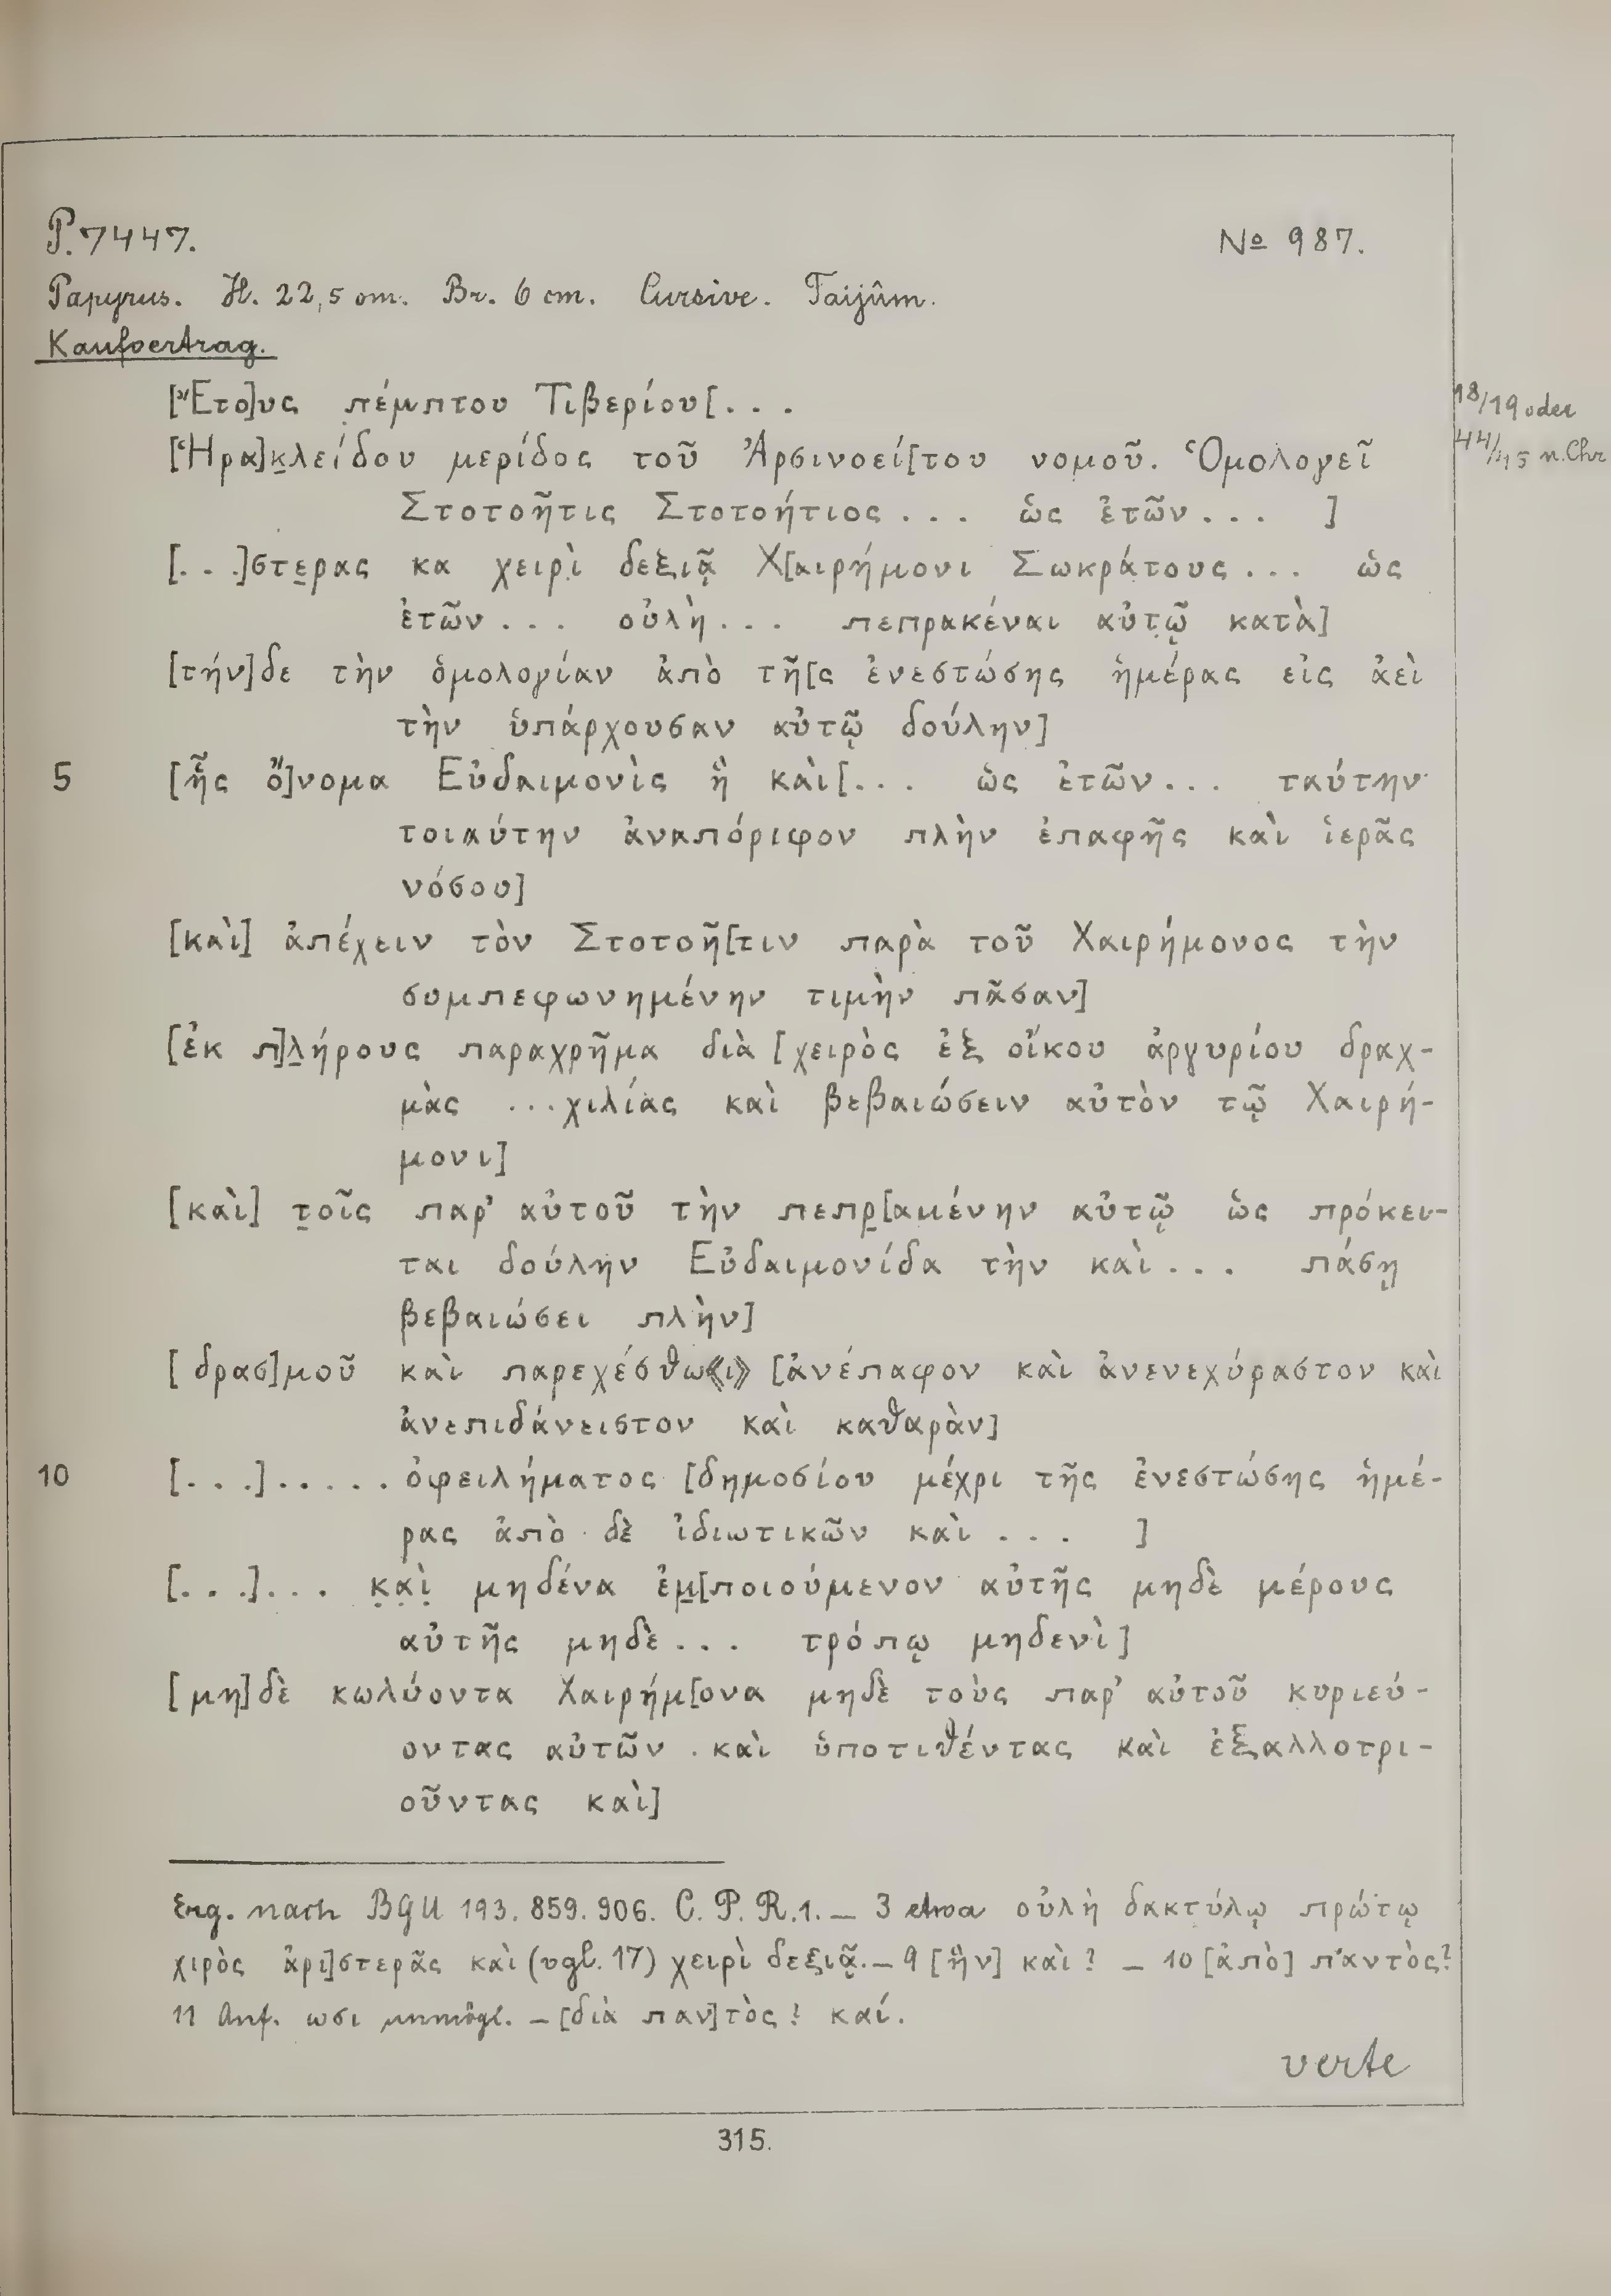 P. 7447.
No 987.
Papyrus. H. 22,5 cm. Br. 6 cm. Cursive. Faijûm.
Kaufvertrag.
[Ἔτο]υς πέμπτου Τιβερίου[...
18/19 oder
[Ἡρα]κ̣λείδου μερίδος τοῦ Ἀρσινοεί[του νομοῦ. Ὁμολογεῖ
44/45 n. Chr
Στοτοῆτις Στοτοήτιος ... ὡς ἐτῶν ... ]
[...]στε̣ρας κα χειρὶ δεξιᾷ Χ[αιρήμονι Σωκράτους ... ὡς
ἐτῶν ... οὐλὴ ... πεπρακέναι αὐτῷ κατὰ]
[τήν]δε τὴν ὁμολογίαν ἀπὸ τῆ[ς ἐνεστώσης ἡμέρας εἰς ἀεὶ
τὴν ὑπάρχουσαν αὐτῷ δούλην]
5 [ἧς ὄ]νομα Εὐδαιμονὶς ἣ καὶ[... ὡς ἐτῶν ... ταύτην
τοιαύτην ἀναπόριφον πλὴν ἐπαφῆς καὶ ἱερᾶς
νόσου]
[καὶ] ἀπέχειν τὸν Στοτοῆ[τιν παρὰ τοῦ Χαιρήμονος τὴν
συμπεφωνημένην τιμὴν πᾶσαν]
[ἐκ π]λ̣ήρους παραχρῆμα διὰ [χειρὸς ἐξ οἴκου ἀργυρίου δραχ-
μὰς ...χιλίας καὶ βεβαιώσειν αὐτὸν τῷ Χαιρή-
μονι]
[καὶ] τ̣οῖς παρ' αὐτοῦ τὴν πεπρ̣[αμένην αὐτῷ ὡς πρόκει-
ται δούλην Εὐδαιμονίδα τὴν καὶ ... πάσῃ
βεβαιώσει πλὴν]
[δρασ]μοῦ καὶ παρεχέσθω⟪ι⟫ [ἀνέπαφον καὶ ἀνενεχύραστον καὶ
ἀνεπιδάνειστον καὶ καθαρὰν]
10 [...]..... ὀφειλήματος [δημοσίου μέχρι τῆς ἐνεστώσης ἡμέ-
ρας ἀπὸ δὲ ἰδιωτικῶν καὶ ... ]
[...]... κ̣α̣ὶ̣ μηδένα ἐμ̣[ποιούμενον αὐτῆς μηδὲ μέρους
αὐτῆς μηδὲ ... τρόπῳ μηδενὶ]
[μη]δὲ κωλύοντα Χαιρήμ[ονα μηδὲ τοὺς παρ' αὐτοῦ κυριεύ-
οντας αὐτῶν καὶ ὑποτιθέντας καὶ ἐξαλλοτρι-
οῦντας καὶ]
Erg. nach BGU 193. 859. 906. C. P. R. 1. — 3 etwa οὐλὴ δακτύλῳ πρώτῳ
χιρὸς ἀρι]στερᾶς καὶ (vgl. 17) χειρὶ δεξιᾷ. — 9 [ἣν] καὶ? — 10 [ἀπὸ] παντὸς?
11 Anf. ωσι unmögl. — [διὰ παν]τὸς? καί.
verte
315.